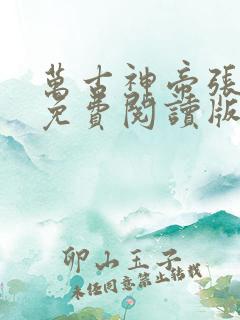 萬古神帝張
免費閱讀版
卯山玉子
未經同意禁止轉載